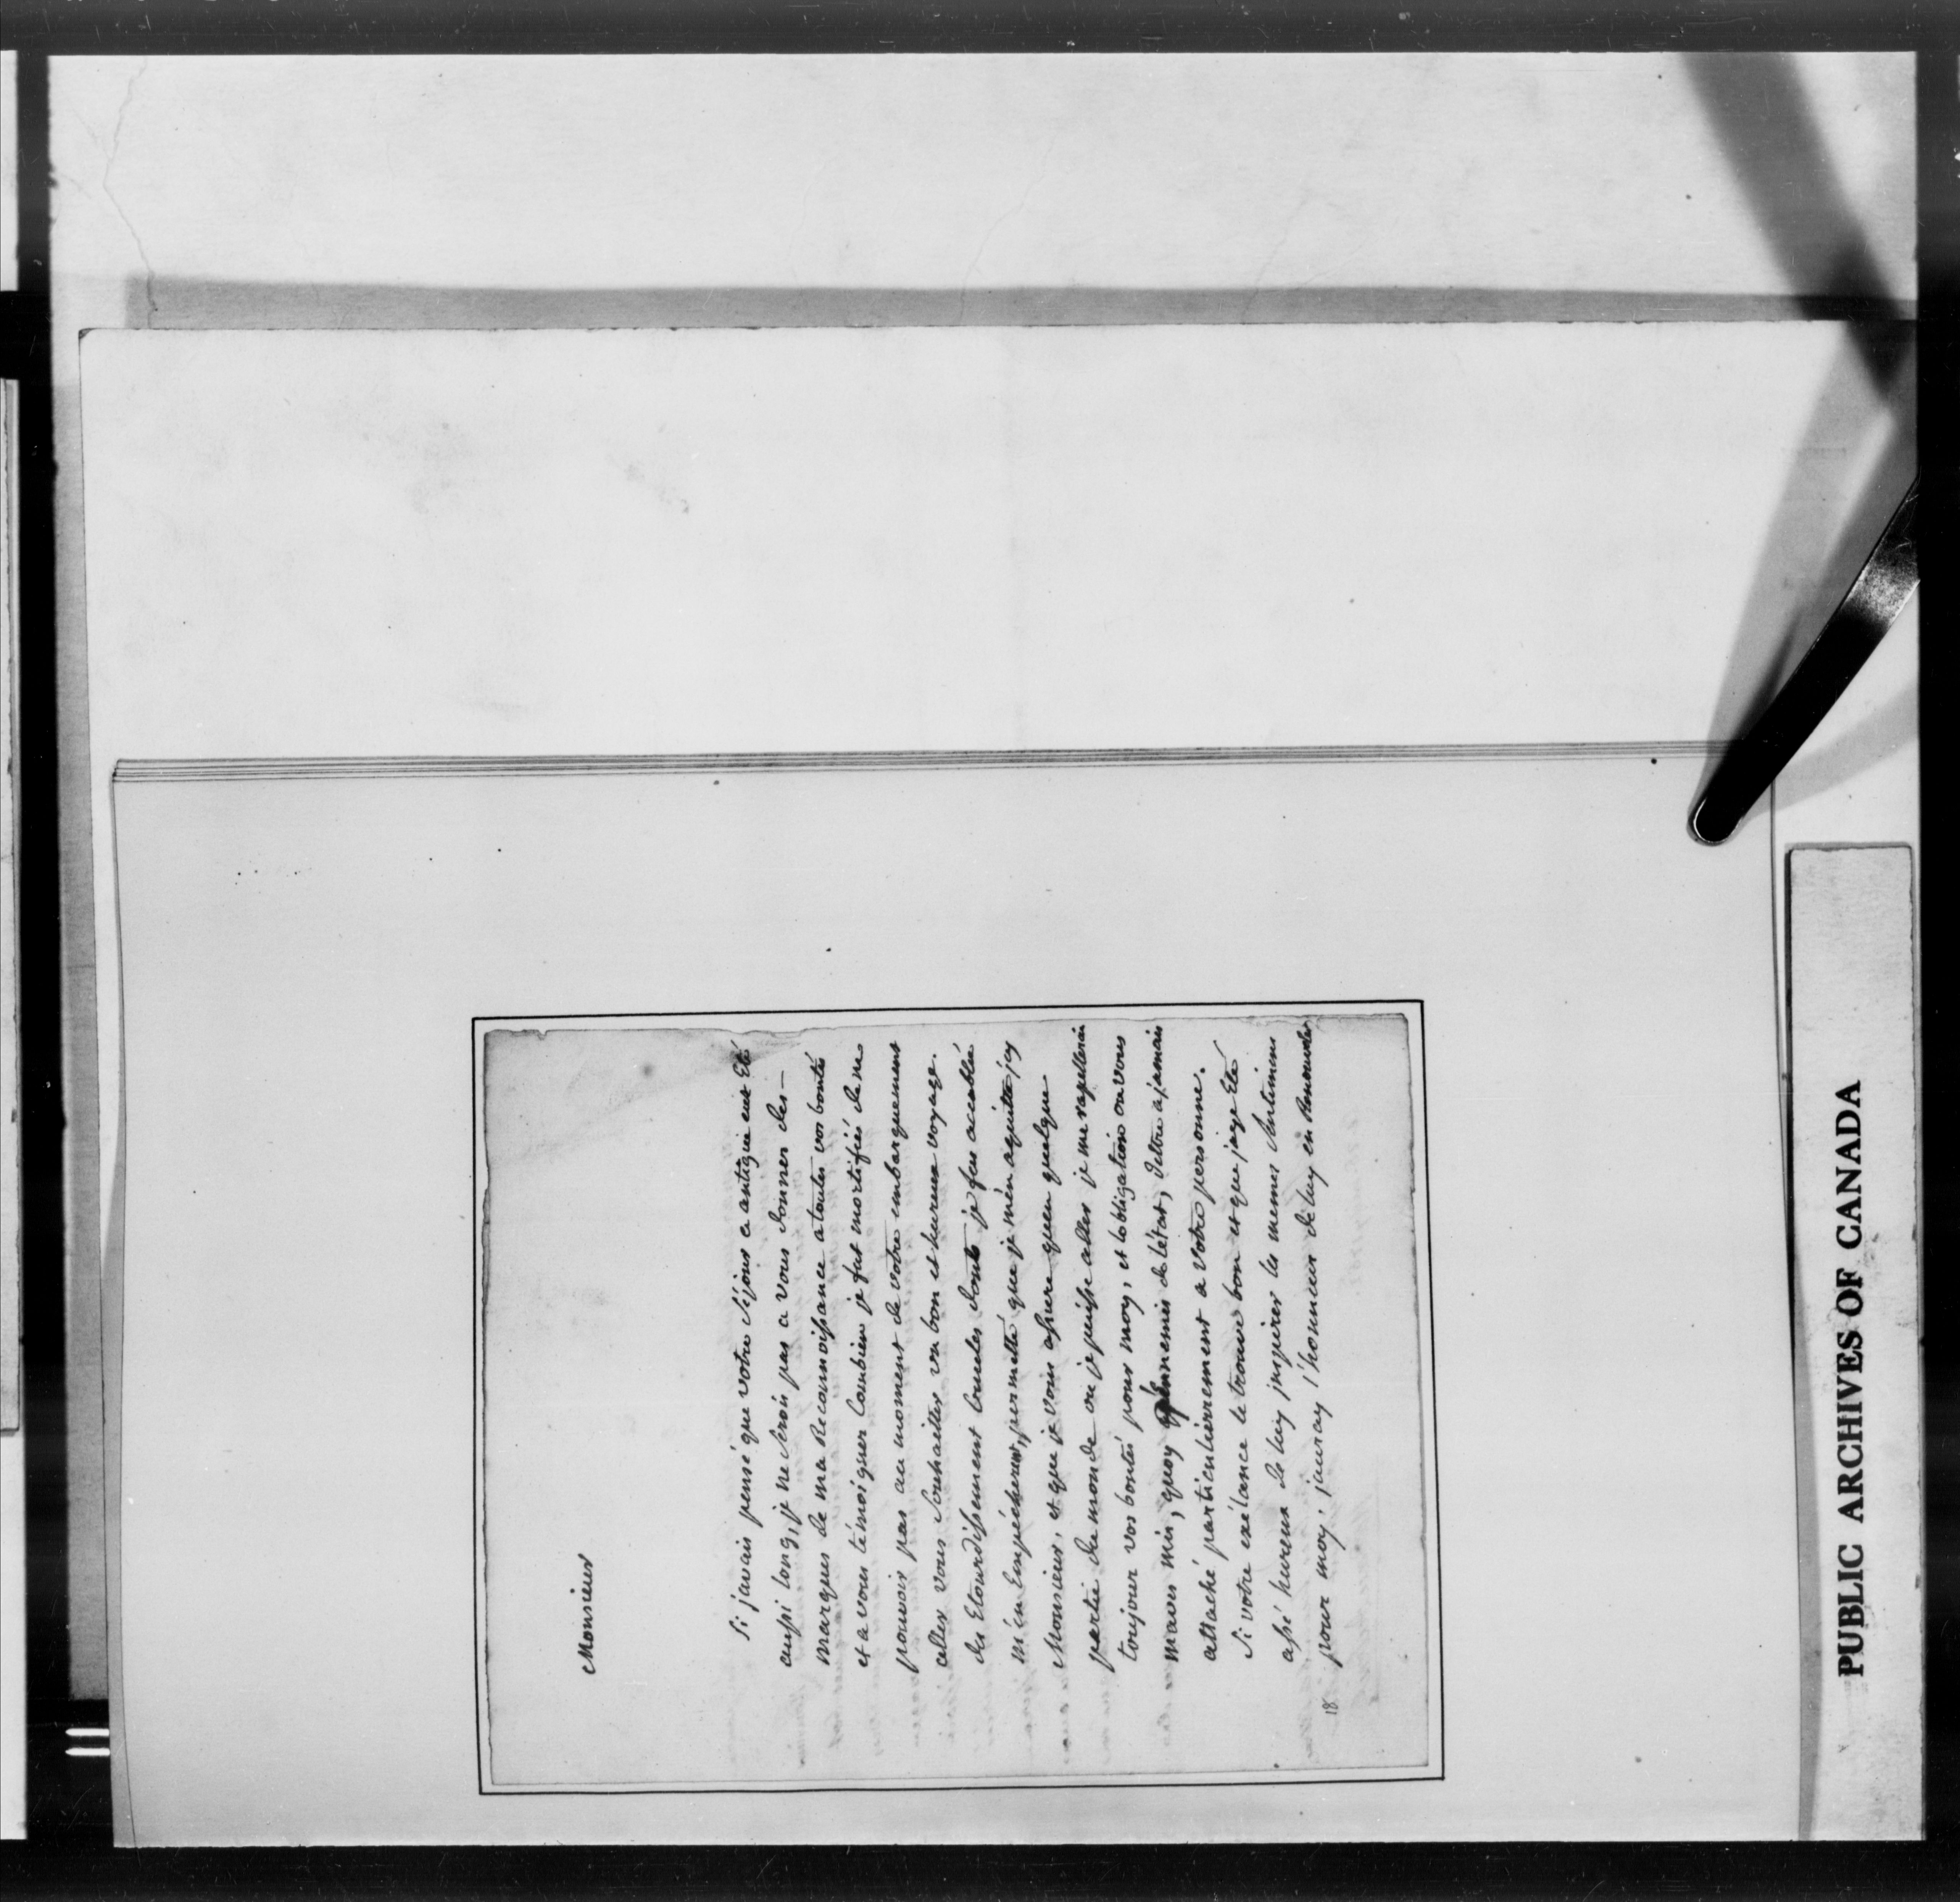 Monsieur
Si javais pensé que votre séjour a antigüe eut Eté
aussi long, je ne serois pas a vous donner des —
marques de ma Reconnoissance a toutes vos bontés
et a vous témoigner Combien je fut mortifiés de ne
pouvoir pas au moment de votre embarquement
aller vous souhaitter un bon et heureux voyage.
des Etourdissement Cruels dont je fus accablée
m'en Empécherent, permetté que je m'en aquitte jcy
Monsieur, et que je vous assure quen quelque
partie du monde ou je puisse aller je me rapellerai
toujour vos bontés pour moy, et lobligation ou vous
maves mis, quoy ennemis de létat, dettre a jamais
attaché particulierrement a votre personne.
Si votre exélance le trouve bon et que jaye Eté
assé hureux de luy jnspirer les memes sentimens
pour moy. jauray l'honneur de luy en Renouveler
18
PUBLIC ARCHIVES OF CANADA